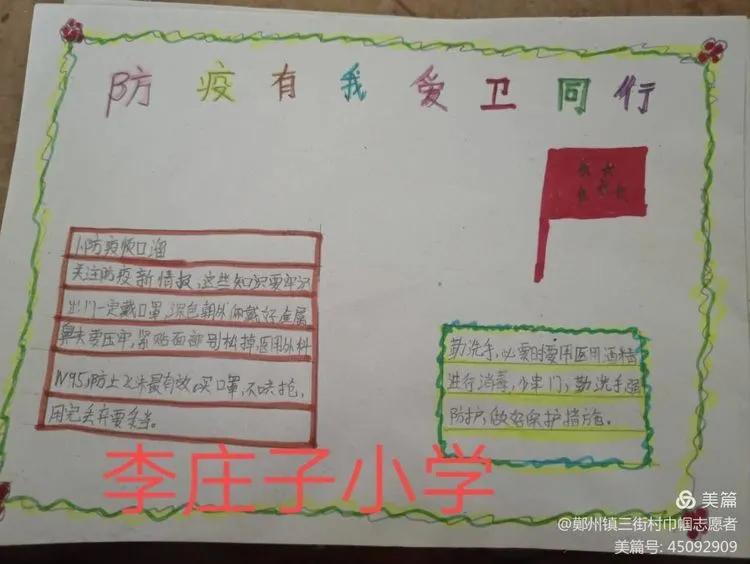 防疫有我爱卫同行
1.防疫顺口溜
关注防疫新情报,这些知识要牢记
出门一定戴口罩,深色朝外佩戴好,金属
鼻夹要压牢,紧贴面部别松掉,医用外科
N95,防上飞沫最有效,买口罩,不哄抢,
用完丢弃要妥当。
勤洗手,必要时要用医用酒精
进行消毒,少串门,勤洗手强
防护,做好保护措施。
李庄子小学
美篇
@鄚州镇三街村巾帼志愿者
美篇号: 45092909